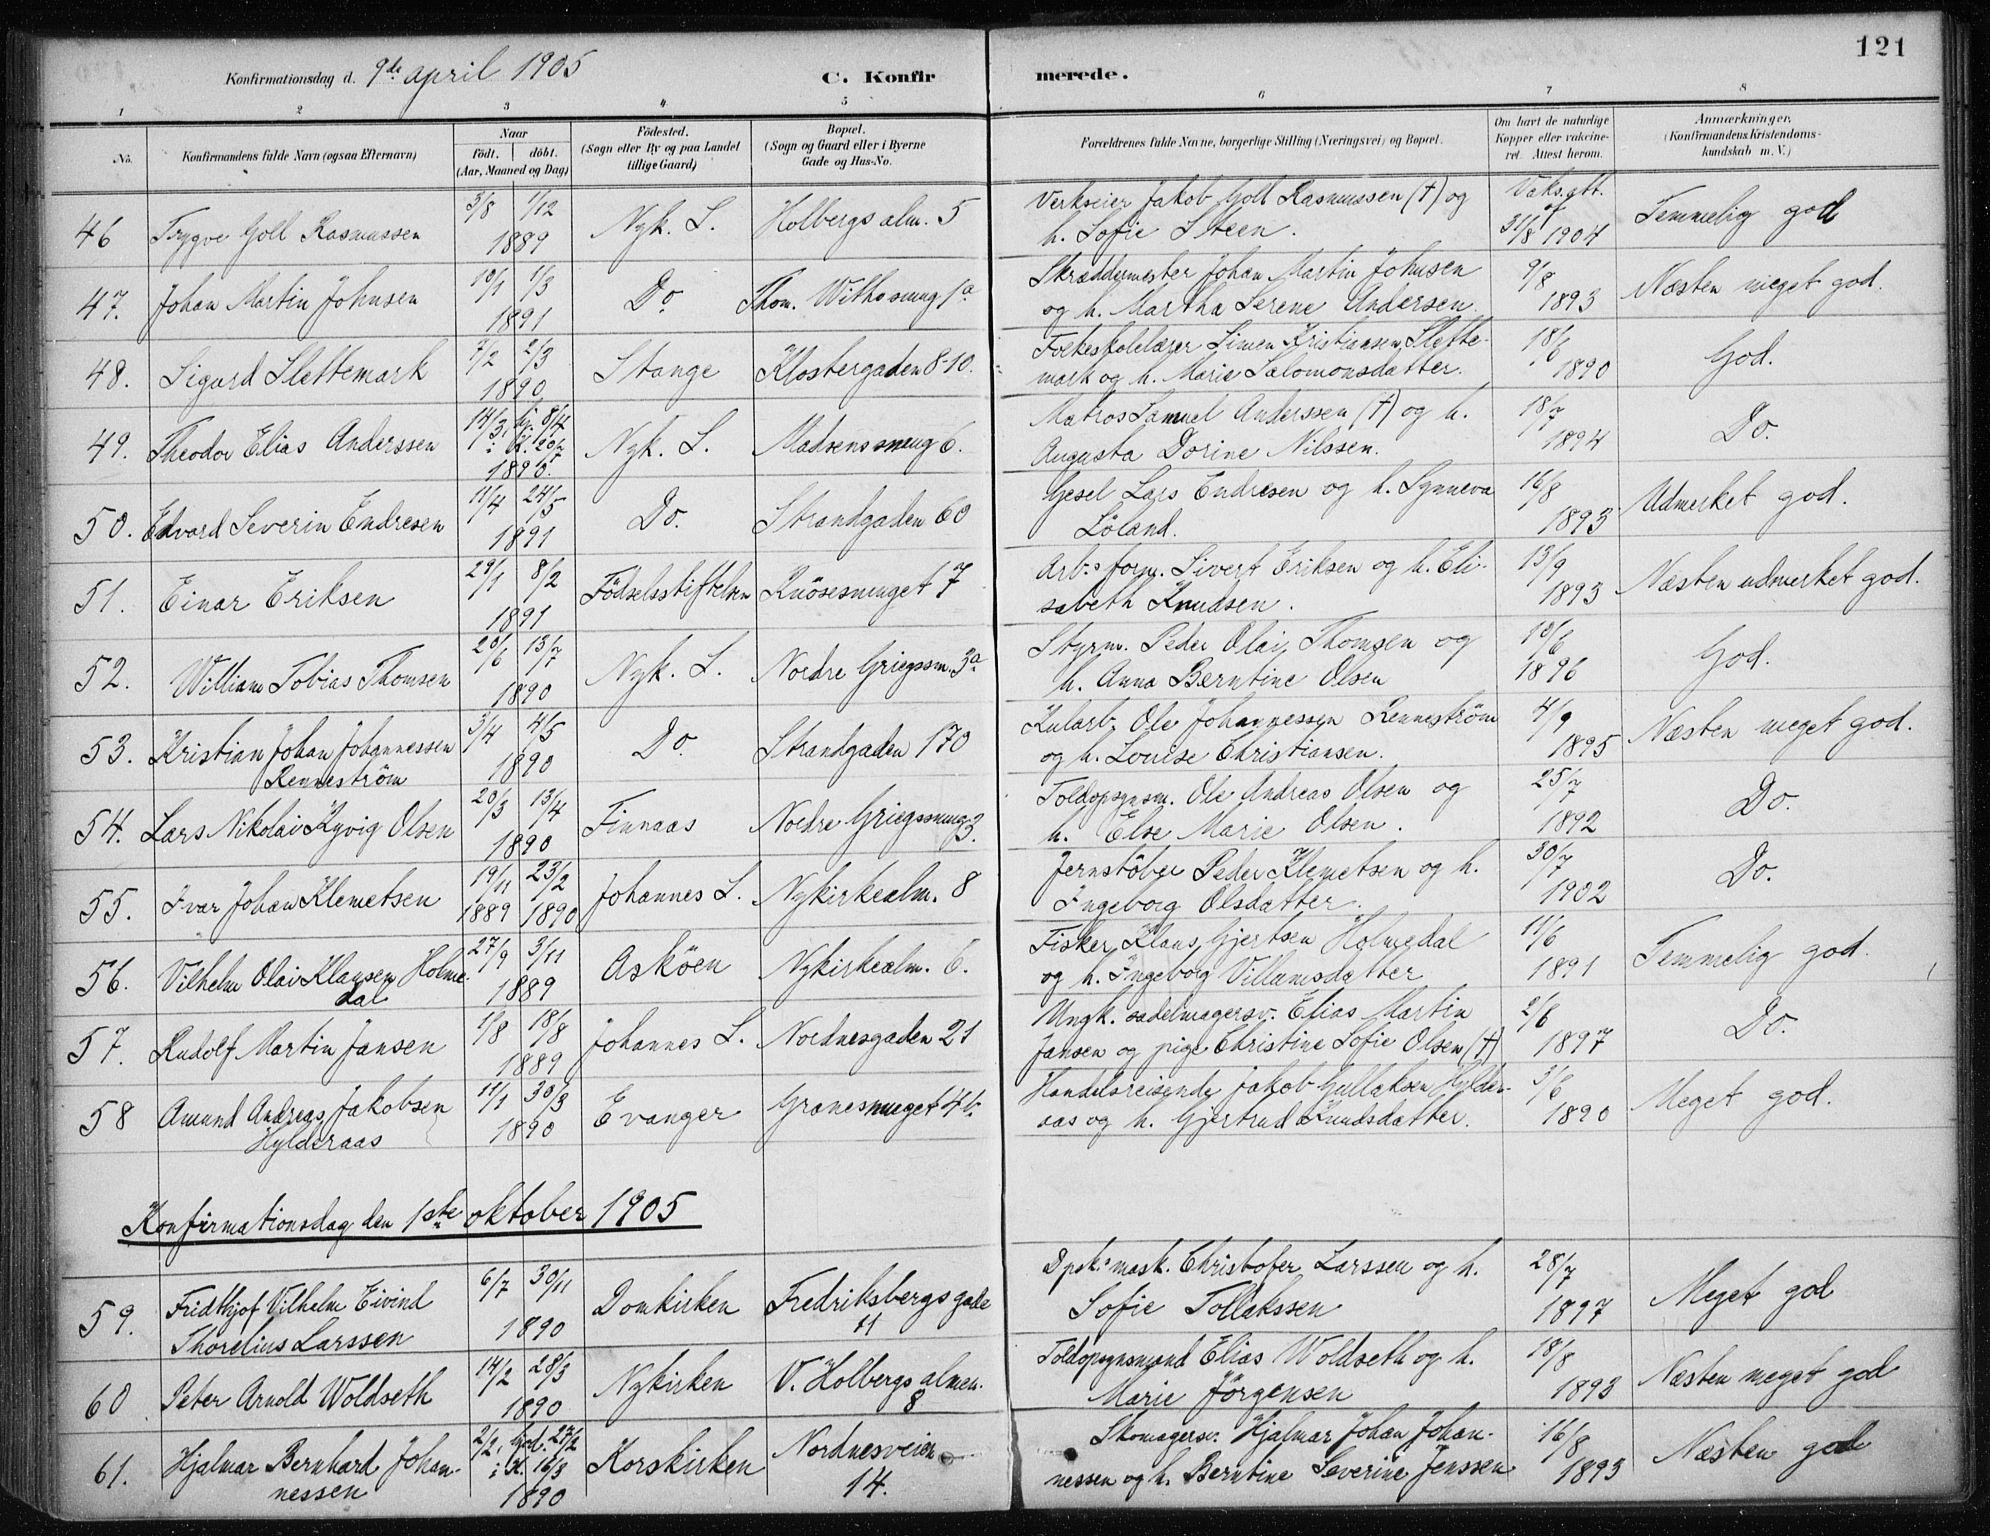 121
Konfirmationsdag d. 9de april 1905
C. Konfirmerede.
1 2 3 4 5 6 7 8
No.
Konfirmandens fulde Navn (ogsaa Efternavn)
Naar
födt. döbt.
(Aar, Maaned og Dag)
Födested.
(Sogn eller By og paa Landet
tillige Gaard)
Bopæl.
(Sogn og Gaard eller i Byerne
Gade og Hus-No.
Forældrenes fulde Navne, borgerlige Stilling (Næringsvei) og Bopæl.
Om havt de naturlige
Kopper eller vakcine-
ret. Attest herom.
Anmærkninger.
(Konfirmandens Kristendoms-
kundskab m. V.)
46 Trygve Goll Rasmussen 3/8 1/12 1889 Nyk. S. Holbergs alm. 5 Verkseier Jakob Goll Rasmussen (†) og
h. Sofie Steen. Vaks.att. af 31/8 1904 Temmelig god
47. Johan Martin Johnsen 10/1 1/3 1891 Do. Thom. Withs smug 1a Skræddermester Johan Martin Johnsen
og h. Martha Serene Andersen 9/8 1893 Næsten meget god.
48. Sigurd Slettemark 7/2 2/3 1890 Stange Klostergaden 8-10. Folkeskolelærer Simen Kristiansen Slette-
mark og h. Marie Salomonsdatter. 18/6 1890 God.
49. Theodor Elias Anderssen 14/3 hj. 8/4 i K. 20/7 1890. Nyk. S. Madsens smug 6. Matros Samuel Anderssen (†) og h.
Augusta Dorine Nilssen. 18/7 1894 Do.
50. Edvard Severin Endresen 11/4 24/5 1891 Do. Strandgaden 60 Gesel Lars Endresen og h. Synneva
Löland. 16/8 1893 Udmerket god.
51. Einar Eriksen 29/1 8/2 1891 Födselsstiftelsen Knösesmuget 7 Arb.s form. Sivert Eriksen og h. Eli-
sabeth Knudsen. 13/9 1893 Næsten udmerket god.
52. William Tobias Thomsen 20/6 13/7 1890 Nyk. S. Nordre Griegssm. 3a Styrm. Peder Olai Thomsen og
h. Anna Berntine Olsen 10/6 1896 God.
53. Kristian Johan Johannessen
Renneström 3/4 4/5 1890 Do. Strandgaden 170 Kularb. Ole Johannessen Renneström
og h. Louise Christiansen. 4/9 1895 Næsten meget god.
54. Lars Nikolai Kyvig Olsen 20/3 13/4 1890 Finnaas Nordre Griegssmug 3. Toldopsynsm. Ole Andreas Olsen og
h. Else Marie Olsen. 25/7 1892 Do.
55. Ivar Johan Klemetsen 19/11 1889 23/2 1890 Johannes S. Nykirkealm. 8 Jernstöber Peder Klemetsen og h.
Ingeborg Olsdatter. 30/7 1902 Do.
56. Vilhelm Olai Klausen Holme-
dal 27/9 3/11 1889 Asköen Nykirkealm. 6. Fisker Klaus Gjertsen Holmedal
og h. Ingeborg Villumsdatter 11/6 1891 Temmelig god.
57. Rudolf Martin Jansen 1/8 18/8 1889 Johannes S. Nordnesgaden 21 Ungk. sadelmagersv. Elias Martin
Jansen og pige Christine Sofie Olsen (†) 2/6 1897 Do.
58 Amund Andreas Jakobsen
Hylderaas 11/1 30/3 1890 Evanger Granesmuget 4b. Handelsreisende Jakob Gullaksen Hylder-
aas og h. Gjertrud Knudsdatter. 3/6 1890 Meget god.
Konfirmationsdag den 1ste oktober 1905
59. Fridthjof Vilhelm Eivind
Thorelius Larssen 6/7 30/11 1890 Domkirken Fredriksbergs gade
11 Dpsk.s mask. Christofer Larssen og h.
Sofie Tollakssen 28/7 1897 Meget god
60 Peter Arnold Woldseth 14/2 28/3 1890 Nykirken V. Holbergs almen.
8 Toldopsynsmand Elias Woldseth og h.
Marie Jörgensen 18/8 1893 Næsten meget god
61. Hjalmar Bernhard Johan-
nessen 2/2 hjd. 27/2 i K. 16/3 1890 Korskirken Nordnesveien
14. Skomagersv. Hjalmar Johan Johan-
nessen og h. Berntine Severine Jenssen 16/8 1893 Næsten god